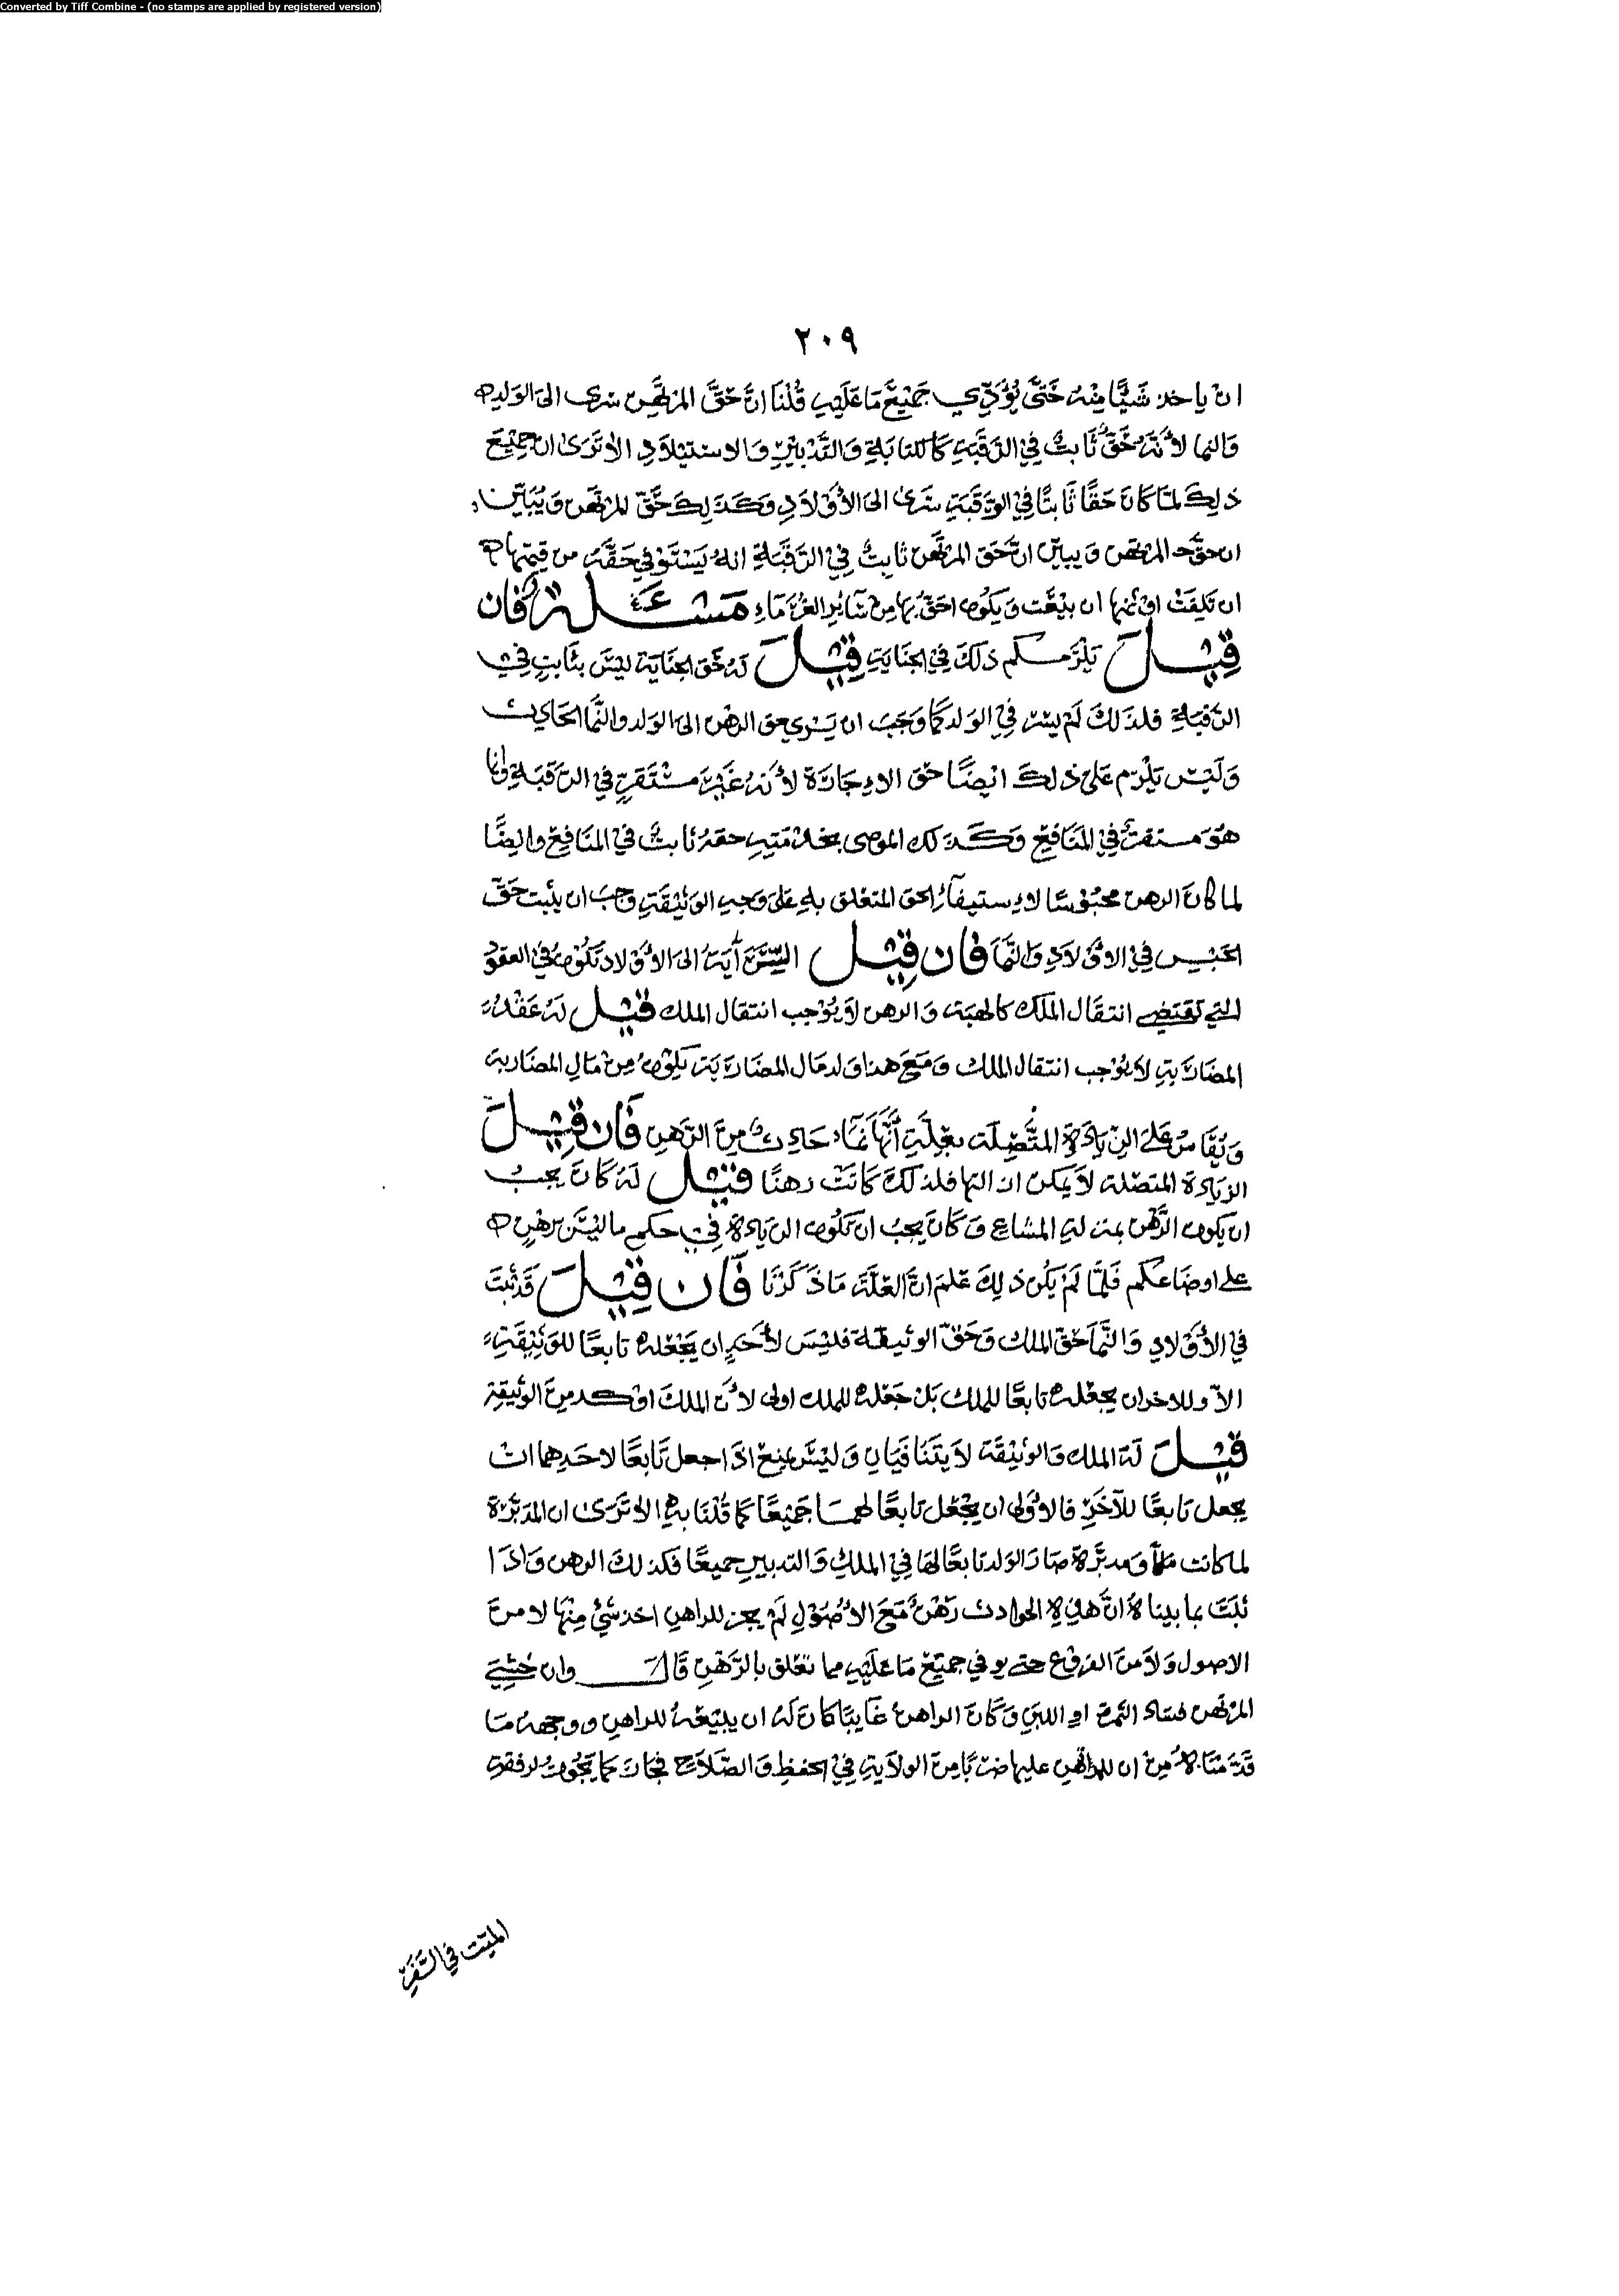 Converted by Tiff Combine - (no stamps are applied by registered version)
٢٠٩
ان ياخذ شيًّا منه حَتَّى يُؤَدِّي جَمِيْعَ مَا عَلَيهِ قُلْنَا انَّ حَقَّ المرتَهن سَرى الى الوَلد
وَالنما لأنَّه حَقٌّ ثَابتٌ فِي الرَّقَبَةِ كَالكتابَةِ وَالتَّدْبِيْرِ وَالاسْتيْلادِ الاتَرَى ان جَمِيْعَ
ذلِكَ لمَّا كَانَ حَقًّا ثَابتًا فِي الرَّقَبَةِ سَرَى الى الأوْلادِ وَكَذلِكَ حَقّ المرتَهن وَيُبَيّن
ان حقَّ المرتهن وَيبيّن ان حَق المرتَهن ثابِتٌ فِي الرَّقَبَةِ انهُ يَسْتَوْفِي حَقَّهُ من قيمَتِها
ان تَلِفَتْ اوْ ثمنِها ان بيْعَت وَيَكُونُ احَقّ بِهَا مِنْ سَآئِرِ الغُرَمَاءِ مَسْئلة فَان
قِيْلَ يَلْزَمكم ذَلكَ فِي الجنَايَةِ قِيْلَ لَهُ حَق الجنَاية ليْسَ بِثَابتٍ فِي
الرَّقبَةِ فلذلكَ لَمْ يسْر فِي الوَلد كمَا وَجَبَ ان يَسْري حق الرهن الى الوَلد والنَّما الحَادِث
وَلَيْسَ يَلْزم عَلى ذلِكَ ايضًا حَق الاجَارَة لأنه غَيْر مسْتَقرٍ فِي الرَّقَبَةِ وانما
هُوَ مستقرٌ فِي المَنَافِعِ وَكَذَلك الموصى بخدْمَتِهِ حقهُ ثابتٌ فِي المنَافِعِ وايضًا
لما كَانَ الرهن محبُوْسًا لاسْتيفَآءِ الحق المتعَلق بِهِ عَلى وَجهِ الوَثيْقَةِ وَجَبَ ان يثبت حَقّ
الحَبْسِ فِي الاوْلادِ وَالنَّمَا فَان قِيْل السِّرَايَة الى الاوْلاد تَكُون فِي العقود
التي تَقتَضِي انتقَال المَلك كالهبَة وَالرهن لايُوْجب انتقال الملك قِيْل لَهُ عَقْدُ
المضَارَبَةِ لايُوْجب انتقال الملك وَمَعَ هذا وَلد مَال المضَارَبَة يَكُوْنُ مِنْ مَالِ المضَاربة
وَيُقَاسُ عَلى الزيَادَةِ المتَّصِلَة بعِلَّةِ أنَّهَا نمَآء حَادِثٌ مِنَ الرَّهنِ فَان قِيْلَ
الزيَادَة المتصّلة لايمكن ازالتها فلذلكَ كَانَتْ رهنًا قِيْل لَهُ كَانَ يجبُ
ان يكون الرَّهْن بمنزلةِ المشَاع وَكَانَ يجبُ ان تَكُون الزيَادَة فِي حكم ما ليْسَ برَهْنٍ
عَلى اوضَاعكم فَلمَّا لَمْ يَكُن ذلِكَ عُلم انَّ العلَّةَ مَا ذَكَرْنَا فَان قِيْلَ قَدْ ثَبتَ
فِي الأوْلادِ وَالنَّمَا حَقّ الملك وَحَقّ الوثيقة فليْسَ لأحَدٍ ان يَجْعَلهُ تابعًا للوَثِيْقَةِ
الاّ وللاخر ان يجعَلهُ تابعًا للملك بَلْ جَعْلهُ للملك اولى لأن الملكَ اوْكد مِنَ الوثيقةِ
قِيْلَ لَهُ الملك وَالوثيْقَة لايَتَنَافَيَانِ وَليْسَ يمنع اذَا جعل تَابعًا لاحَدِهما انْ
يجعل تَابعًا للآخَرِ فالاوْلى ان يجْعَلَ تَابعًا لهمَا جَميْعًا كمَا قُلْنَا بهِ الاتَرَى ان المدَبَّرَة
لما كانت ملكًا وَمدبَّرة صَارَ الوَلد تابعًا لهَا فِي الملكِ وَالتدبيرِ جميعًا فكذلكَ الرهن وَاذَا
ثَبَتَ بما بيناهُ أنَّ هذِهِ الحوادث رَهْنٌ مَعَ الاصُوْلِ لَمْ يجز للراهنِ اخذ شَيْءٍ مِنْهَا لا منَ
الاصول وَلا منَ الفروْع حتى يوفي جميْعَ مَا عَلَيْهِ مما تعَلق بالرَّهْنِ قَالَ وان خُشِيَ
المرْتهن فسَاد الثمَرِ او اللبنِ وَكَانَ الراهنُ غَايِبًا كَانَ لَهُ ان يبيْعَهُ للراهنِ ووجههُ مَا
قَدَّمْنَاهُ مِنْ ان للمرتهنِ عليها ضربًا مِنَ الولايَةِ فِي الحفظِ وَالصَّلاحِ فجَازَ كما يَجُوزُ لرفقةِ
الميّت في السَّفَرِ